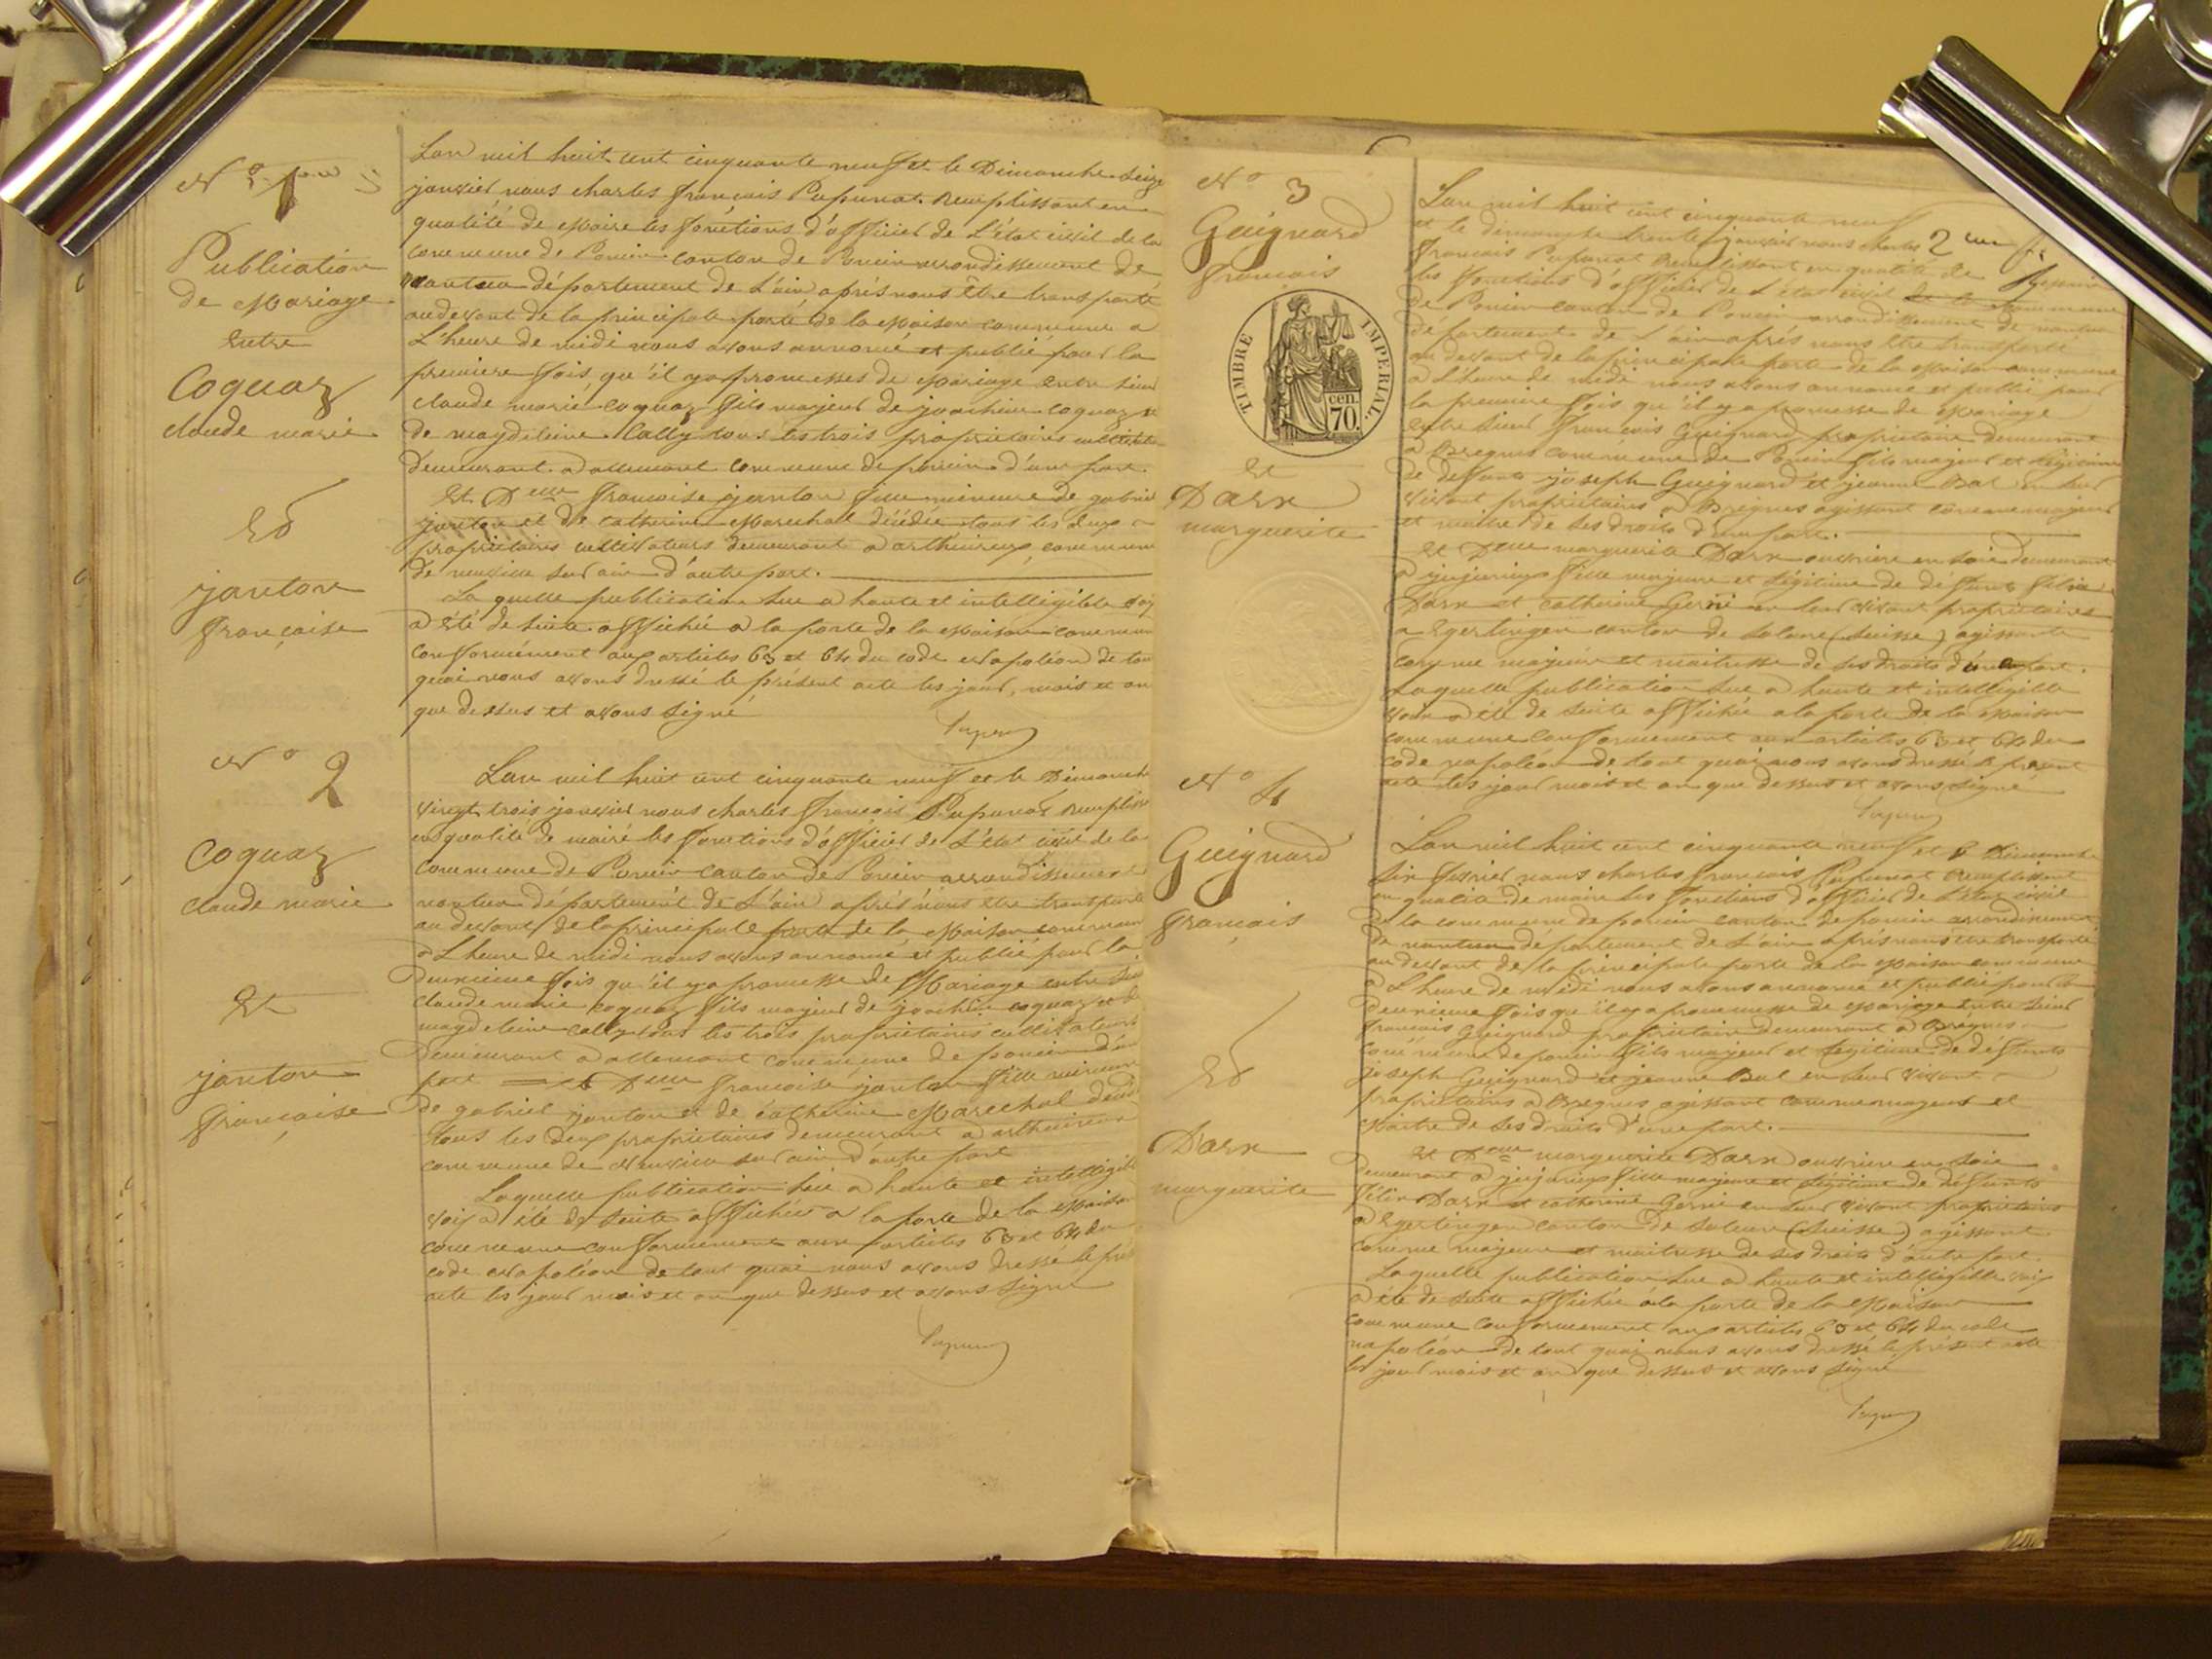 N° 1er
Publication
de Mariage
Entre
Coquaz
claude marie
Et
janton
françoise
L'an mil huit cent cinquante neuf et le Dimanche seize
janvier nous charles françois Pupunat remplissant en
qualité de Maire les fonctions d'officier de L'état civil de la
commune de Poncin canton de Poncin arrondissement de
nantua département de L'ain après nous être transporté
au devant de la principale porte de la Maison commune a
L'heure de midi nous avons annoncé et publié pour la
premiere fois, qu'il y a promesses de Mariage entre sieur
claude marie coquaz fils majeur de joachim coquaz et
de magdeleine Cally tous les trois propriétaires
demeurant a allement commune de poncin d'une part.
Et Delle françoise janton fille mineure de gabriel
janton et de catherine Marechal décédée tous les deux
propriétaires cultivateurs demeurant a arthuireux commune
de neuville sur ain d'autre part.
La quelle publication lue a haute et intelligible voix
a été de suite affichée a la porte de la Maison commune
conformément aux articles 63 et 64 du code Napoléon de tout
quoi nous avons dressé le présent acte les jour, mois et an
que dessus et avons signé
N° 2
Coquaz
claude marie
Et
janton
françoise
L'an mil huit cent cinquante neuf et le Dimanche
vingt trois janvier nous charles françois Pupunat
en qualité de maire les fonctions d'officier de L'état civil de la
commune de Poncin canton de Poncin arrondissement
nantua département de L'ain après nous être transporté
au devant de la principale porte de la Maison commune
a L'heure de midi nous avons annoncé et publié pour la
deuxieme fois qu'il y a promesse de Mariage entre
claude marie coquaz fils majeur de joachim coquaz et de
magdeleine cally tous les trois propriétaires cultivateurs
demeurant a allement commune de poncin d'une
part et Delle françoise janton fille mineure
de gabriel janton et de catherine Marechal
tous les deux propriétaires demeurant a arthuireux
commune de Neuville sur ain d'autre part
Laquelle publication lue a haute et intelligible
voix a été de suite affichée a la porte de la Maison
commune conformement aux articles 63 et 64 du
code Napoléon de tout quoi nous avons dressé le
acte les jour mois et an que dessus et avons signé
N° 3
Guignard
françois
TIMBRE IMPERIAL.
70. cen.
Et
Darx
marguerite
L'an mil huit cent cinquante neuf
et le dimanche trente janvier nous charles
françois Pupunat remplissant en qualité de
les fonctions d'officier de L'état civil de la commune
de Poncin canton de Poncin arrondissement de nantua
département de L'ain après nous être transporté
au devant de la principale porte de la Maison commune
a L'heure de midi nous avons annoncé et publié pour
la premiere fois qu'il y a promesse de Mariage
entre sieur françois Guignard propriétaire demeurant
a Bregnes commune de Poncin fils majeur et légitime
de defunts joseph Guignard et jeanne Bal en leur
vivant propriétaires a Bregnes agissant comme majeur
et maitre de ses droits d'une part.
Et Delle marguerite Darx ouvrière en soie demeurant
a jujurieux fille majeure et légitime de defunts
Darx et catherine en leur vivant propriétaires
a Egertingen canton de Soleure (Suisse) agissante
comme majeure et maitresse de ses droits
Laquelle publication lue a haute et intelligible
voix a été de suite affichée a la porte de la Maison
commune conformement aux articles 63 et 64 du
code napoléon de tout quoi nous avons dressé le présent
acte les jour mois et an que dessus et avons signé
N° 4
Guignard
françois
Et
Darx
marguerite
L'an mil huit cent cinquante neuf et le Dimanche
six fevrier nous charles françois Pupunat remplissant
en qualité de maire les fonctions d'officier de L'état civil
de la commune de poncin canton de poncin arrondissement
de nantua département de L'ain après nous être transporté
au devant de la principale porte de la Maison commune
a L'heure de midi nous avons annoncé et publié pour la
deuxieme fois qu'il y a promesse de Mariage entre sieur
françois Guignard propriétaire demeurant a Bregnes
commune de poncin fils majeur et légitime de defunts
joseph Guignard et jeanne Bal en leur vivant
propriétaires a Bregnes agissant comme majeur et
Maitre de ses droits d'une part.
Et Delle marguerite Darx ouvriere en soie
demeurant a jujurieux fille majeure et légitime de defunts
Darx et catherine en leur vivant propriétaires
a Egertingen canton de Soleure (Suisse) agissant
comme majeure et maitresse de ses droits d'autre part.
Laquelle publication lue a haute et intelligible voix
a été de suite affichée a la porte de la Maison
commune conformement aux articles 63 et 64 du code
napoléon de tout quoi nous avons dressé le présent acte
les jour mois et an que dessus et avons signé